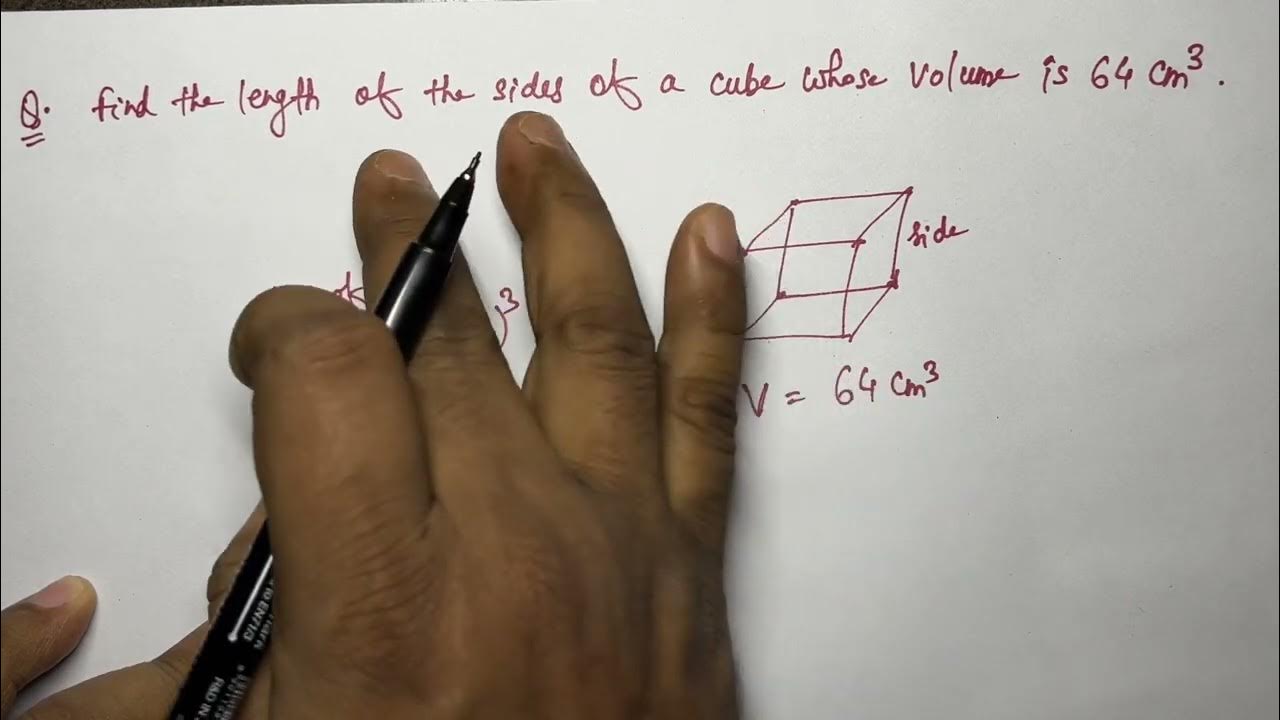 Q. find the length of the sides of a cube whose volume is 64 cm³.
side
)³
V = 64 cm³